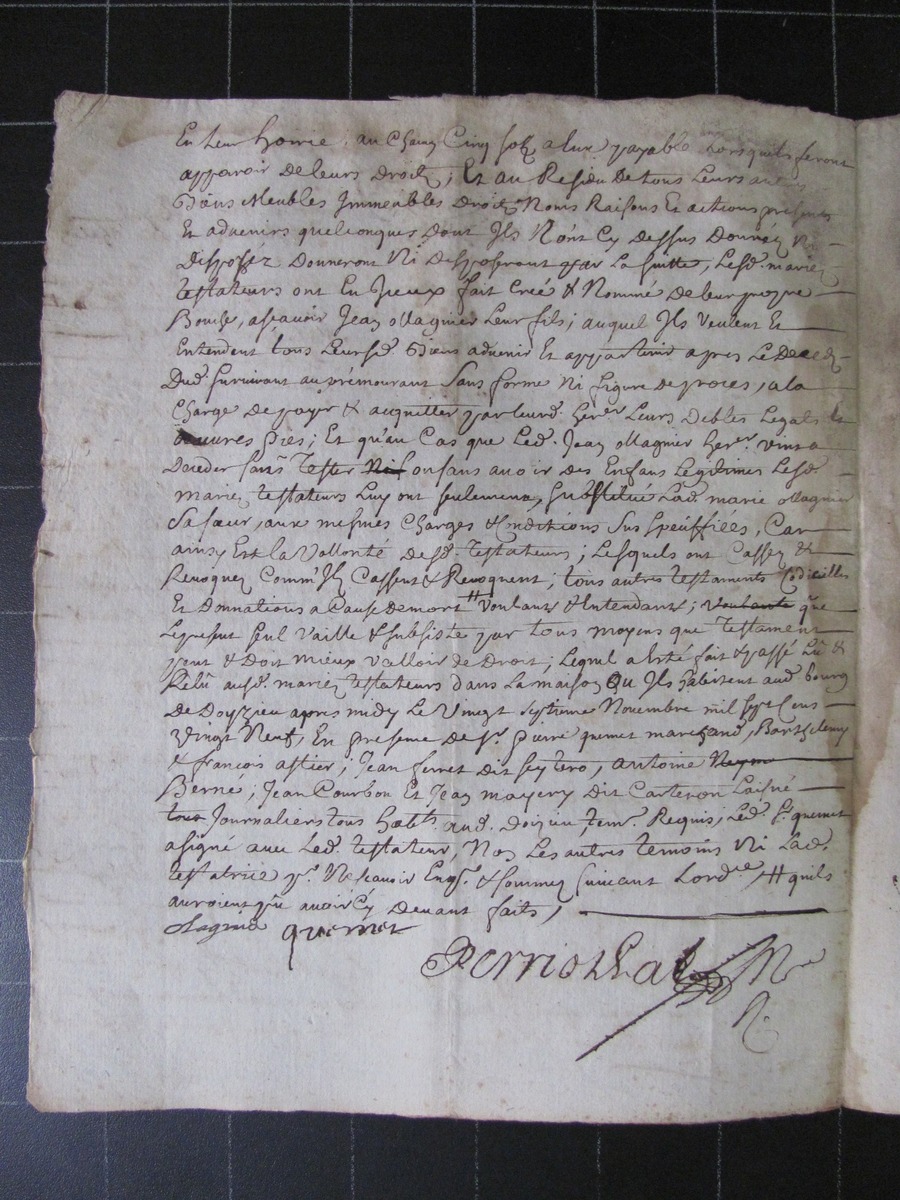 En leur hoirie, au Chacun Cinq solz a lun payable Lorsquils feront
apparoir De leurs Droitz; Et au Residu De tous Leurs autres
Biens Meubles Immeubles Droitz Noms Raisons Et actions presents
Et advenirs quelconques Dont Ils N'ont Cy Dessus Donnéz Ni
Disposéz Donneront Ni Disposeront par La suitte, Lesd. mariez
testateurs ont En Iceux fait Creé & Nommé De leur propre
Bouche, ascavoir Jean Magnier Leur fils; auquel Ils Veulent Et
Entendent tous Leursd. Biens advenir Et appartenir apres Le Deced
Dud. survivant au prémourant Sans forme Ni figure De proces, a la
Charge De payer & acquitter par leurd. herer. Leurs Debtes Legats &
œuvres pies; Et qu'au Cas que Led. Jean Magnier herer. vint a
Deceder sans tester ou sans avoir Des Enfans Legitimes Lesd.
mariez testateurs Luy ont seulement substitué Lad. marie Magnier
Sa sœur, aux mesmes Charges & Conditions Sus speciffiées, Car
ainsy Est la Vollonté Desd. testateurs; Lesquels ont Cassez &
Revoquez Comm'Ils Cassent & Revoquent; tous autres testaments Codicilles
Et Donnations a Cause De mort # Voulants & Entendants; voulants que
Le present seul vaille & subsiste par tous moyens que Testament
peut & Doit mieux valloir de Droit; Lequel a été fait & passé Lû &
Relû ausd. mariez testateurs dans La maison Qu Ils habitent aud. bourg
De Doyzieu apres midy Le vingt septieme Novembre mil sept Cens
vingt Neuf, En presence De sr. pierre quemet marchand, Barthelemy
& francois astier; Jean ferret Dit seytero, antoine
Berné; Jean Courbon Et Jean mayery Dit Carteron Laisné
tous Journaliers tous habts. aud. Doizieu, tem. Requis; Led. sr. quemet
a signé avec Led. testateur, Non Les autres temoins Ni Lad.
testatrice pr. Ne scavoir Enqs. & sommez suivant Lordce, # quils
auroient pû avoir Cy Devant faits,
Magnié quemet
Perriothat Nre
R.